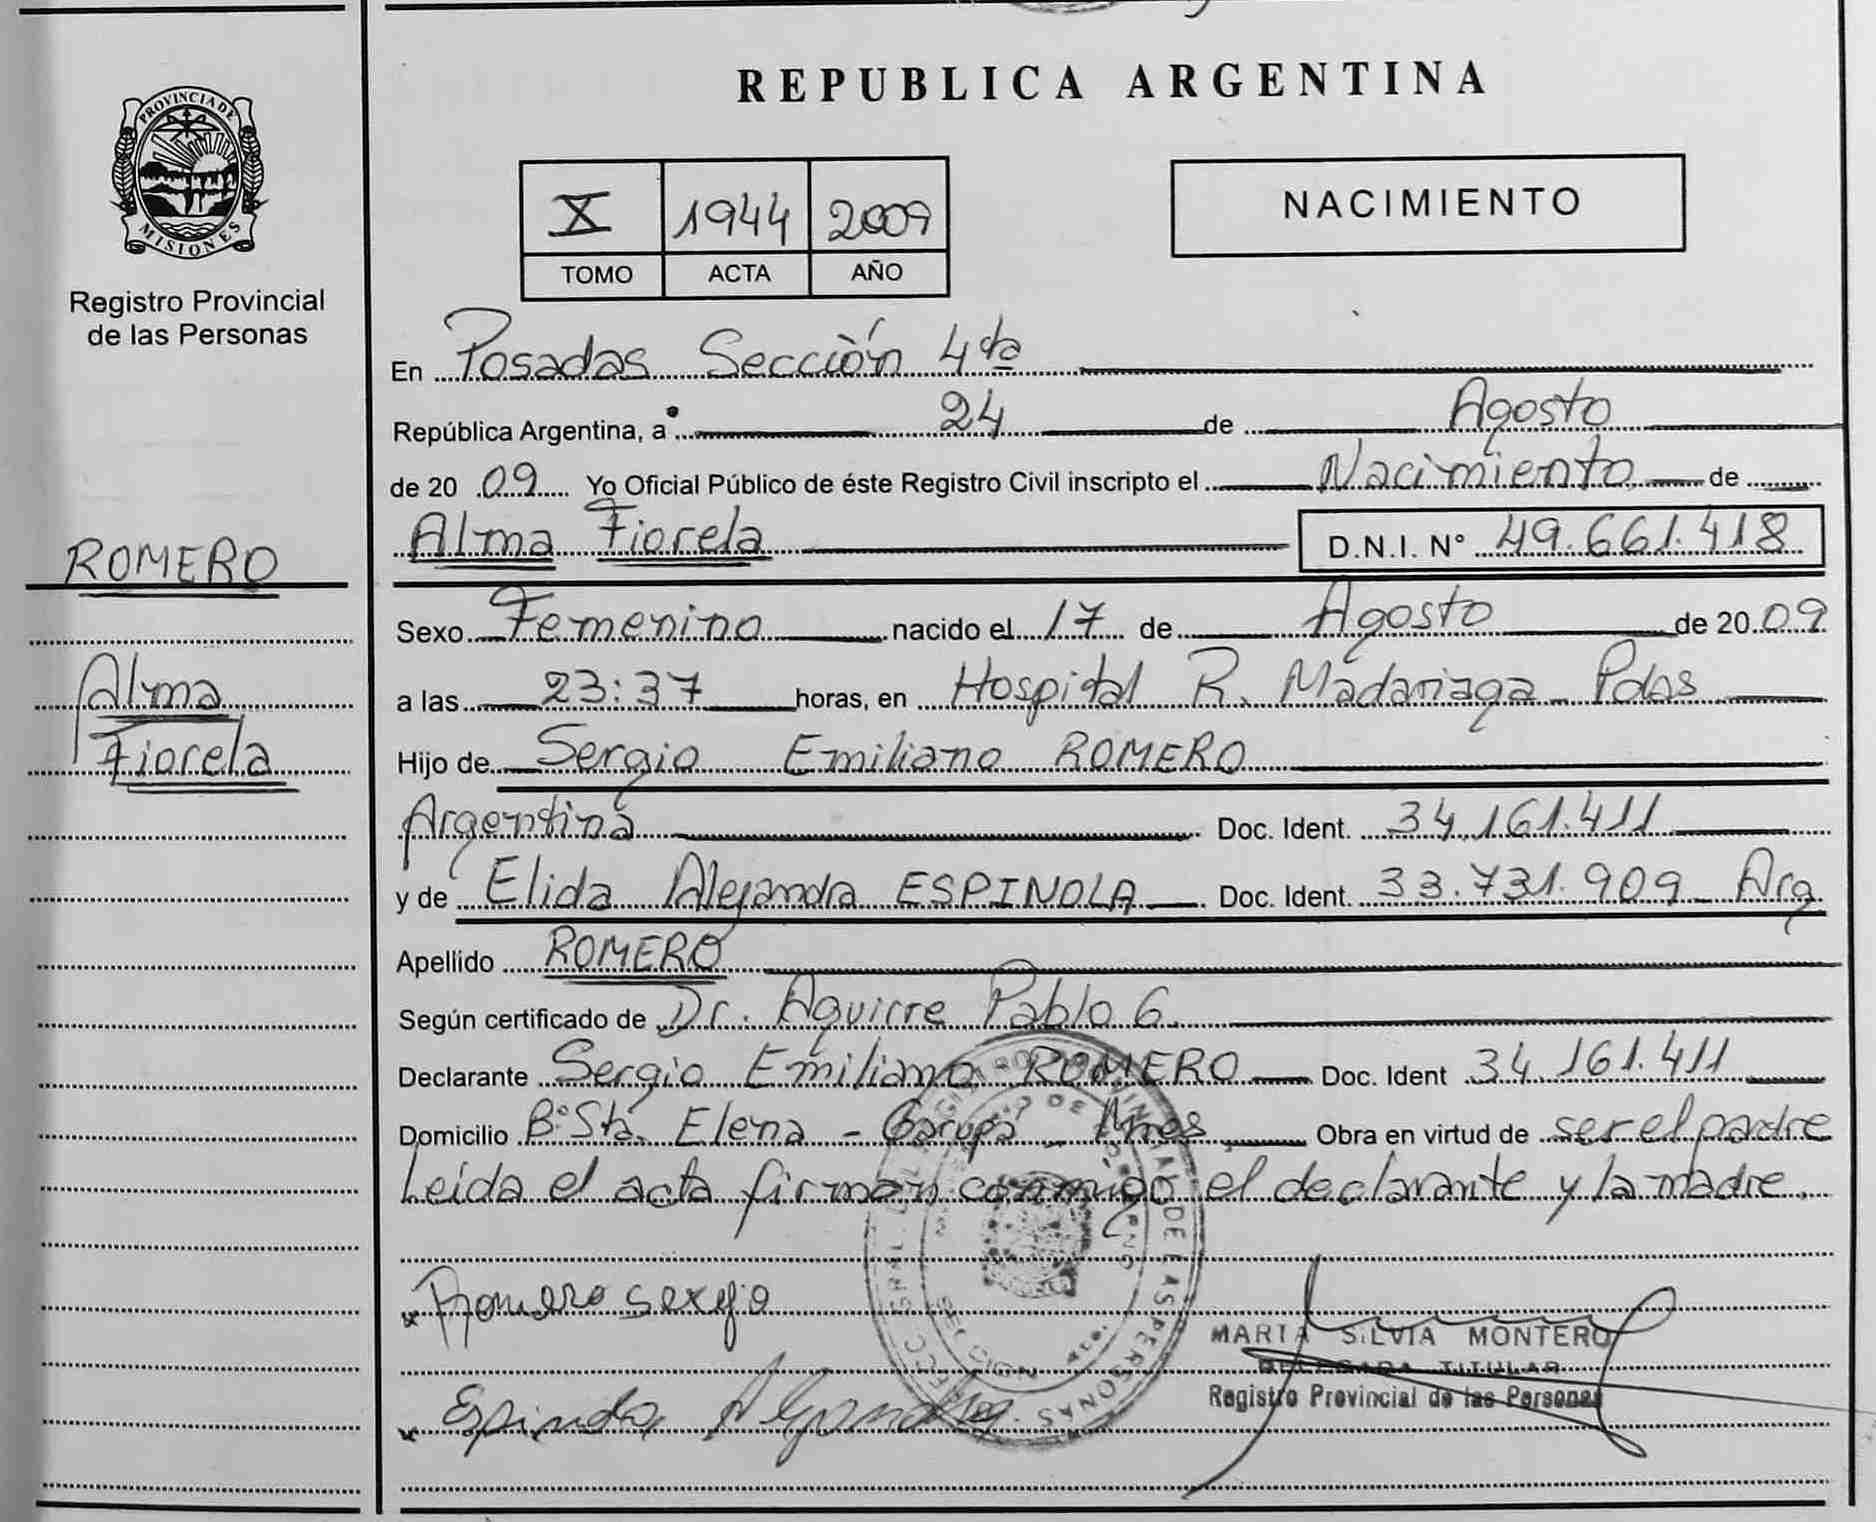 PROVINCIA DE
MISIONES
Registro Provincial
de las Personas
ROMERO
Alma
Fiorela
REPUBLICA ARGENTINA
X 1944 2009
TOMO ACTA AÑO
NACIMIENTO
En Posadas Sección 4ta
República Argentina, a 24 de Agosto
de 20 09 Yo Oficial Público de éste Registro Civil inscripto el Nacimiento de
Alma Fiorela D.N.I. N° 49.661.418
Sexo Femenino nacido el 17 de Agosto de 20 09
a las 23:37 horas, en Hospital R. Madariaga Pdas
Hijo de Sergio Emiliano ROMERO
Argentina Doc. Ident. 34.161.411
y de Elida Alejandra ESPINOLA Doc. Ident. 33.731.909 Arg
Apellido ROMERO
Según certificado de Dr. Aguirre Pablo G.
Declarante Sergio Emiliano ROMERO Doc. Ident 34.161.411
Domicilio B° Sta. Elena - Garupá - Mnes Obra en virtud de ser el padre
Leida el acta firman conmigo el declarante y la madre.
Romero sergio
MARTA SILVIA MONTERO
DELEGADA TITULAR
Registro Provincial de las Personas
Espinola Alejandra